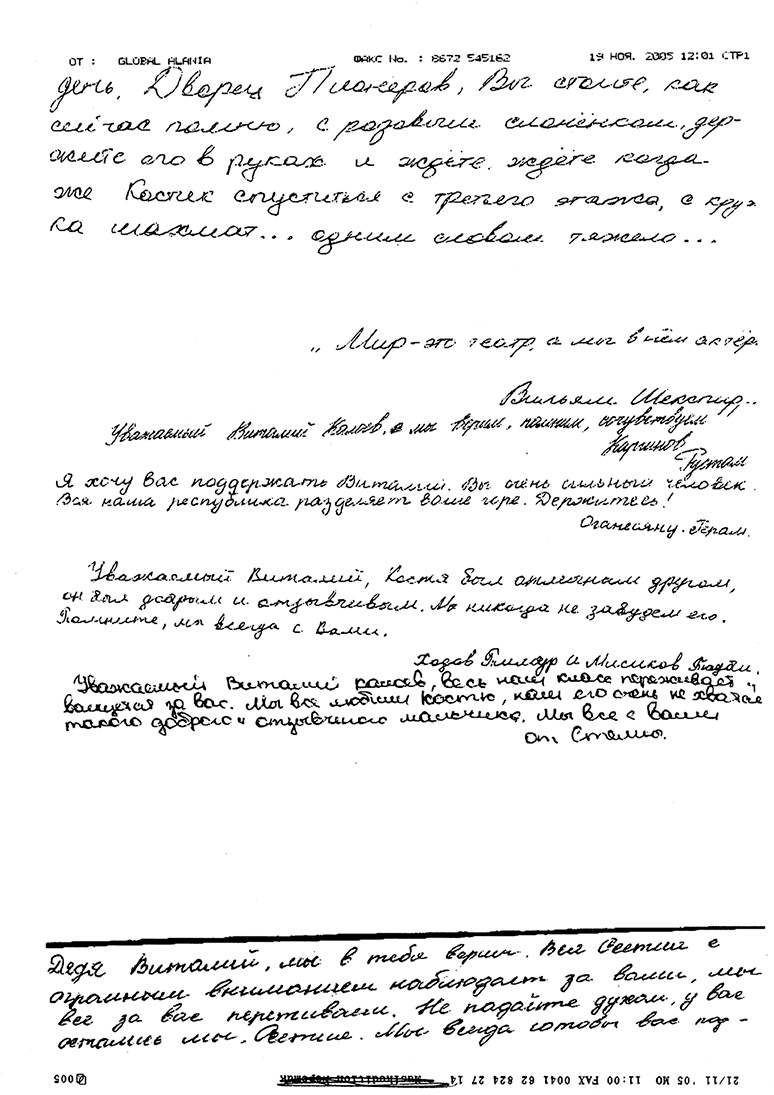 ОТ : GLOBAL ALANIA ФАКС No. : 8672 545162 19 НОЯ. 2005 12:01 СТР1
день, Дворец Пионеров, Вы стоите, как
сейчас помню, с розовым слонёнком, дер-
жите его в руках и ждёте, ждёте когда
же Костик спуститься с третего этажа, с круж
ка шахмат... одним словом тяжело...
„Мир-это театр, а мы в нём актёр.
Вильям Шекспир„.
Уважаемый Виталий Калоев, а мы верим, помним, сочувствуем
Каргинов
Рустам
Я хочу вас поддержать Виталий. Вы очень сильный человек.
Вся наша республика разделяет ваше горе. Держитесь!
Оганесяну. Герам.
Уважаемый Виталий, Костя был отличным другом,
он был добрым и отзывчивым. Мы никогда не забудем его.
Помните, мы всегда с Вами.
Ходов и Мисиков
Уважаемый Виталий весь наш класс переживает и
волнуется за вас. Мы все любили Костю, нам его очень не хватае
такого доброго и отзывчивого мальчика. Мы все с вами
от Стеллы.
Дядя Виталий, мы в тебя верим. Вся Осетия с
огромным вниманием наблюдает за вами, мы
все за вас переживаем. Не падайте духом, у вас
остались мы, Осетия. Мы всегда готовы вас под-
21/11 '05 MO 11:00 FAX 0041 62 824 27 14 005